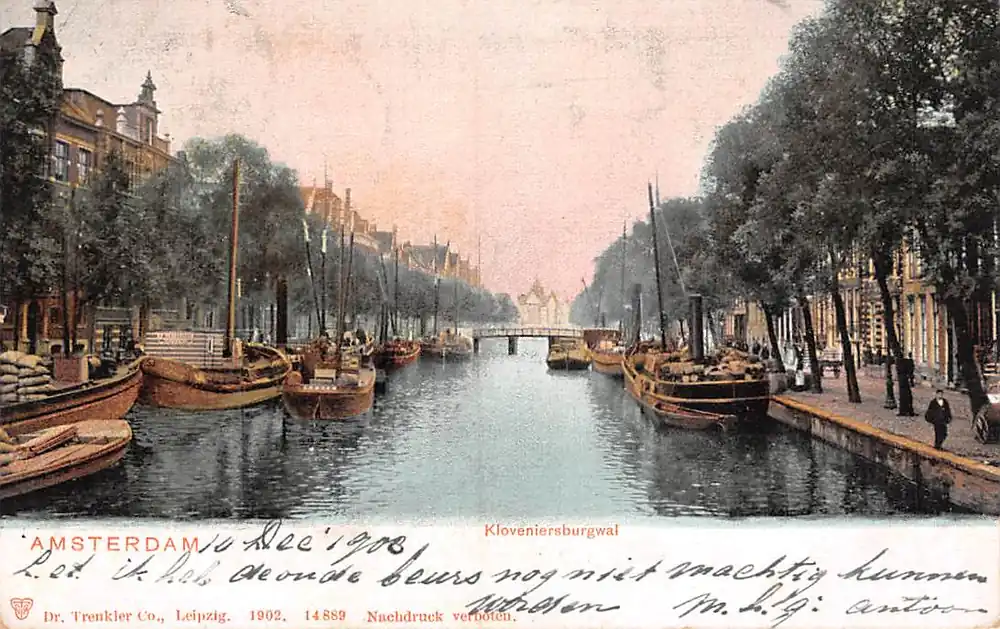 Kloveniersburgwal
AMSTERDAM 10 Dec 1903
ik het de oude beurs nog niet machtig kunnen
worden M. h. g: Antoon
Dr. Trenkler Co., Leipzig. 1902. 14889 Nachdruck verboten.